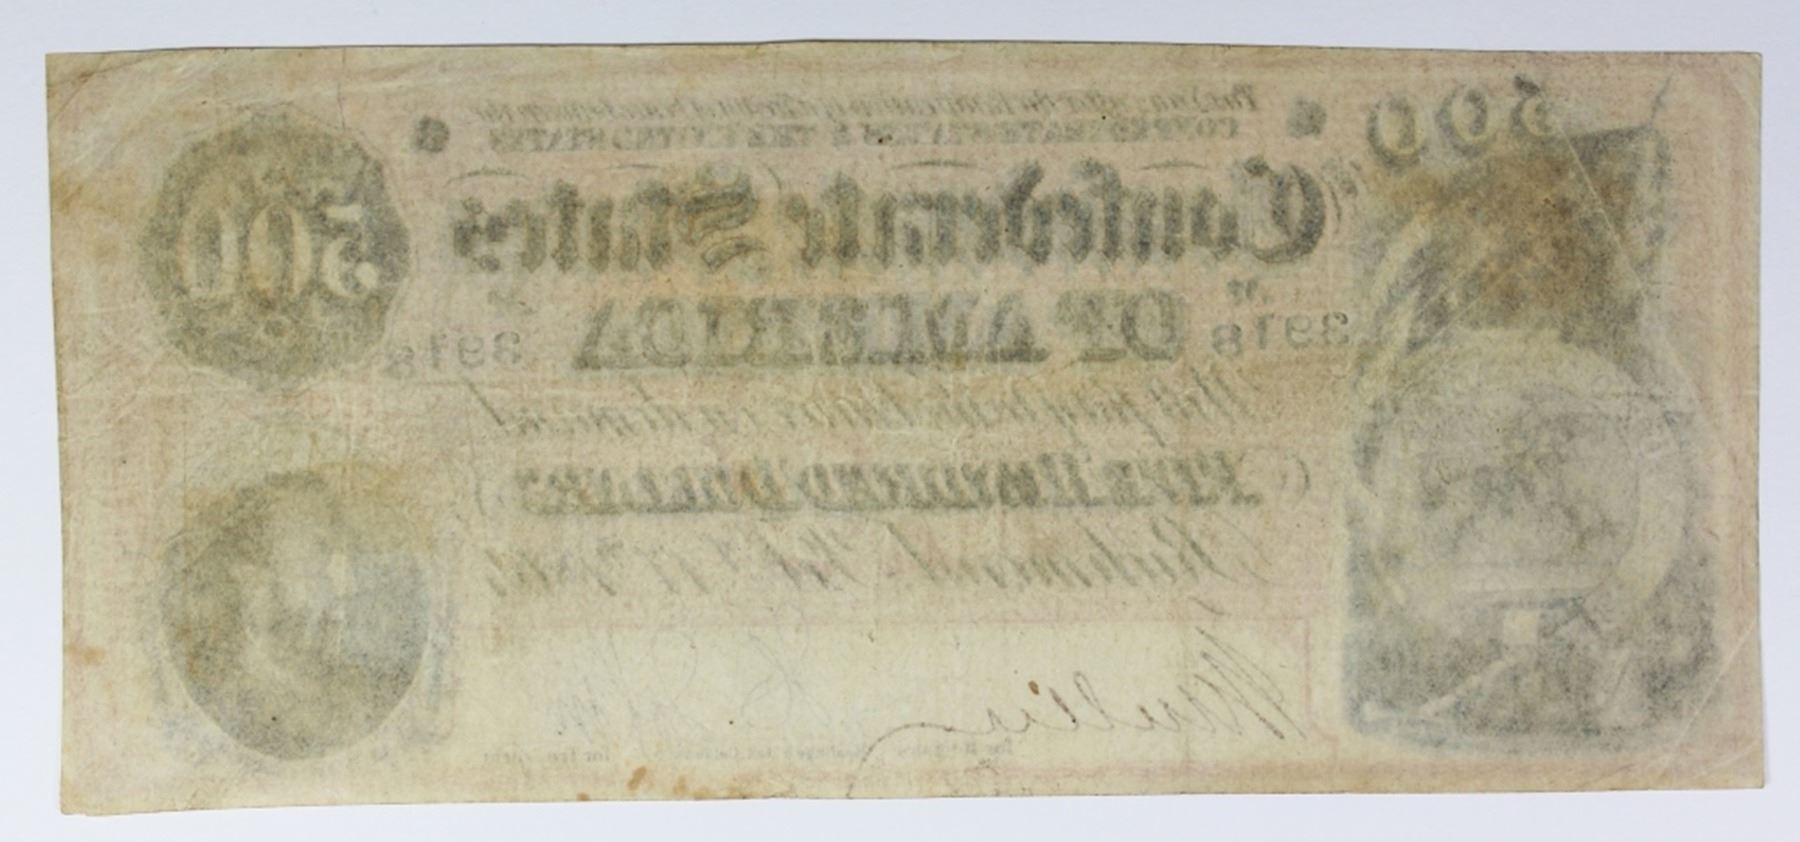 500
Two years after the Ratification of a Treaty of Peace between the
CONFEDERATE STATES & THE UNITED STATES
Confederate States
500
OF AMERICA
Nº 3918
3918
Will pay to the bearer on demand
FIVE HUNDRED DOLLARS
Richmond Feb
for Register
for Treasurer